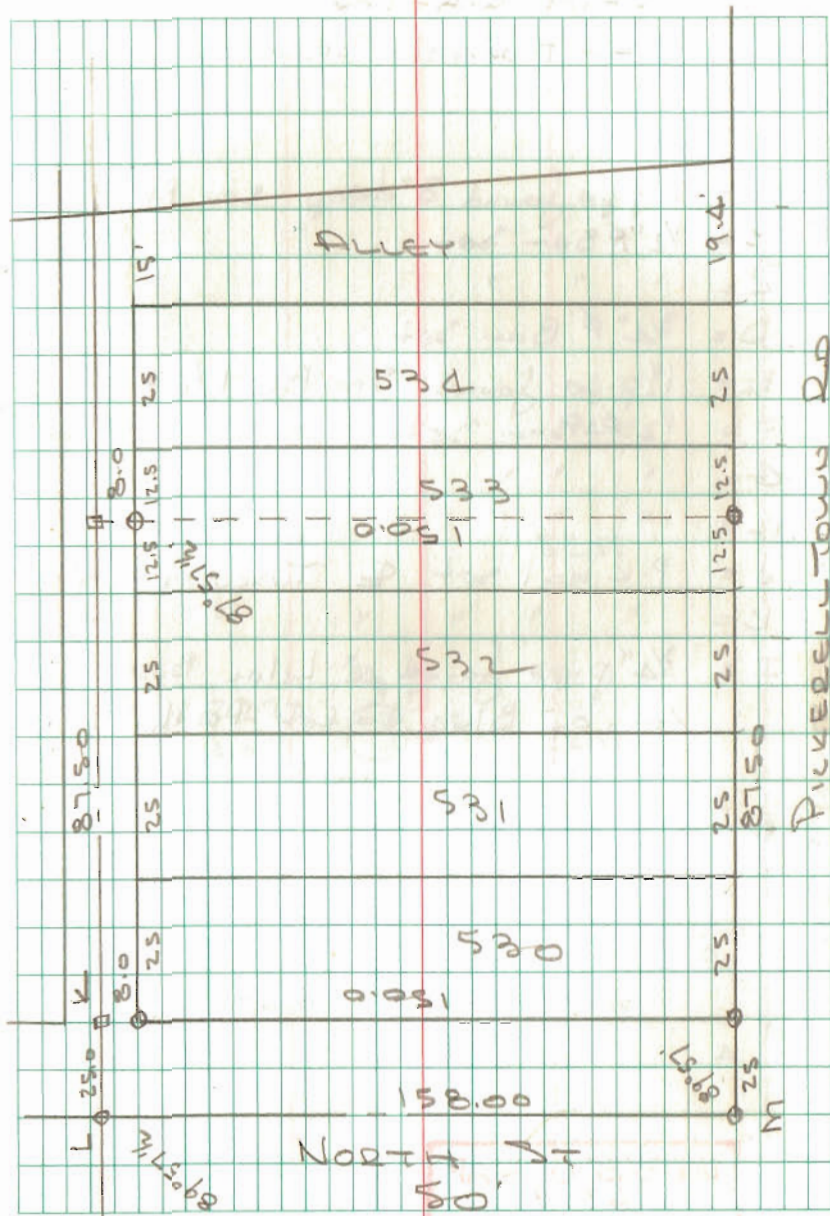 15'
ALLEY
19.4'
25
534
25
8.0
12.5
533
12.5
150.0
12.5
12.5
89°57½
25
532
25
87.50
25
531
25
87.50
PICKERELL TOWN RD
25
530
25
K
8.0
150.0
L
25.0
158.00
25
89°57'
M
89°57½
NORTH ST
50'